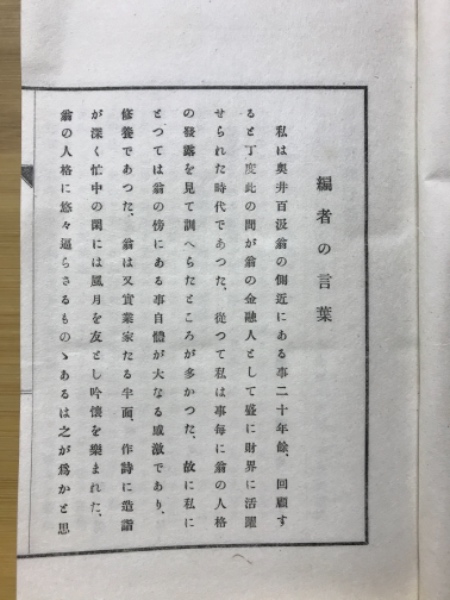 編者の言葉
私は奥井百汲翁の側近にある事二十年餘、回顧す
ると丁度此の間が翁の金融人として盛に財界に活躍
せられた時代であつた、從つて私は事每に翁の人格
の發露を見て訓へらたところが多かつた、故に私に
とつては翁の傍にある事自體が大なる感激であり、
修養であつた、翁は又實業家たる半面、作詩に造詣
が深く忙中の閑には風月を友とし吟懷を樂まれた、
翁の人格に悠々逼らさるものゝあるは之が爲かと思